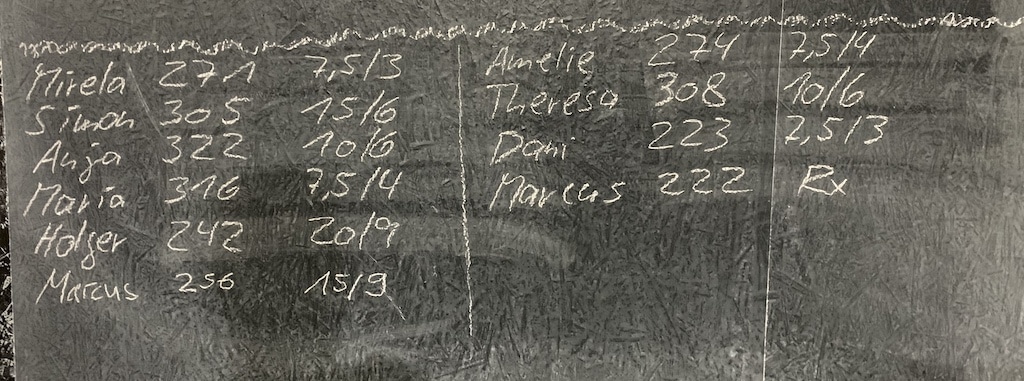 Mirela 271 7,5/3
Simon 305 15/6
Anja 322 10/6
Maria 316 7,5/4
Holger 242 20/9
Marcus 256 15/9
Amelie 274 7,5/4
Theresa 308 10/6
Dani 223 7,5/3
Marcus 222 Rx